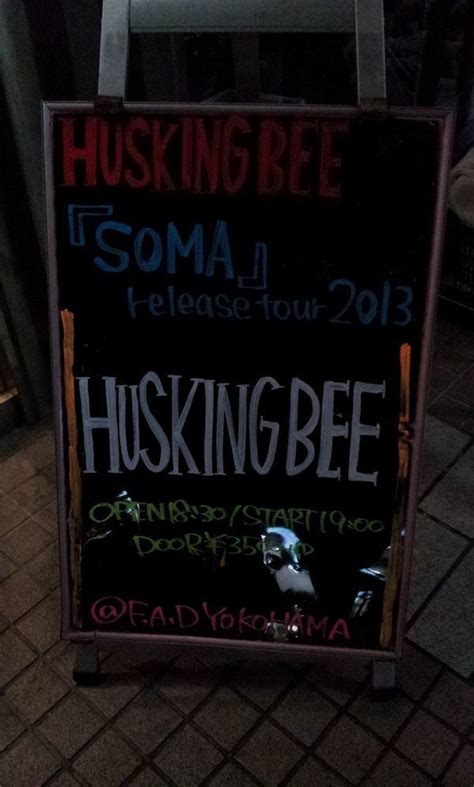 HUSKING BEE
『SOMA』
release tour 2013
HUSKING BEE
OPEN18:30/START19:00
DOOR
@F.A.D YOKOHAMA